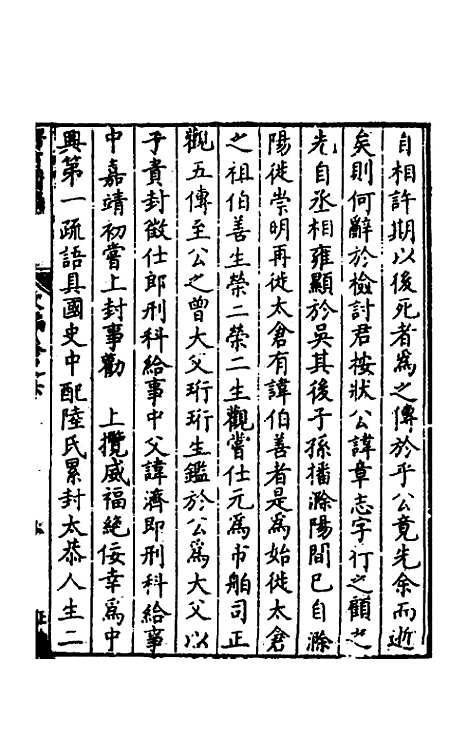 自相許期以後死者為之傳於乎公竟先余而逝
矣則何辭於檢討君按狀公諱章志字行之顧之
先自丞相雍顯於吳其後子孫播滁陽間已自滁
陽徙崇明再徙太倉有諱伯善者是為始徙太倉
之祖伯善生榮二榮二生觀嘗仕元為市舶司正
觀五傳至公之曾大父珩珩生鑑於公為大父以
子貴封徵仕郎刑科給事中父諱濟即刑科給事
中嘉靖初嘗上封事勸 上攬威福絕佞幸為中
興第一疏語具國史中配陸氏累封太恭人生二